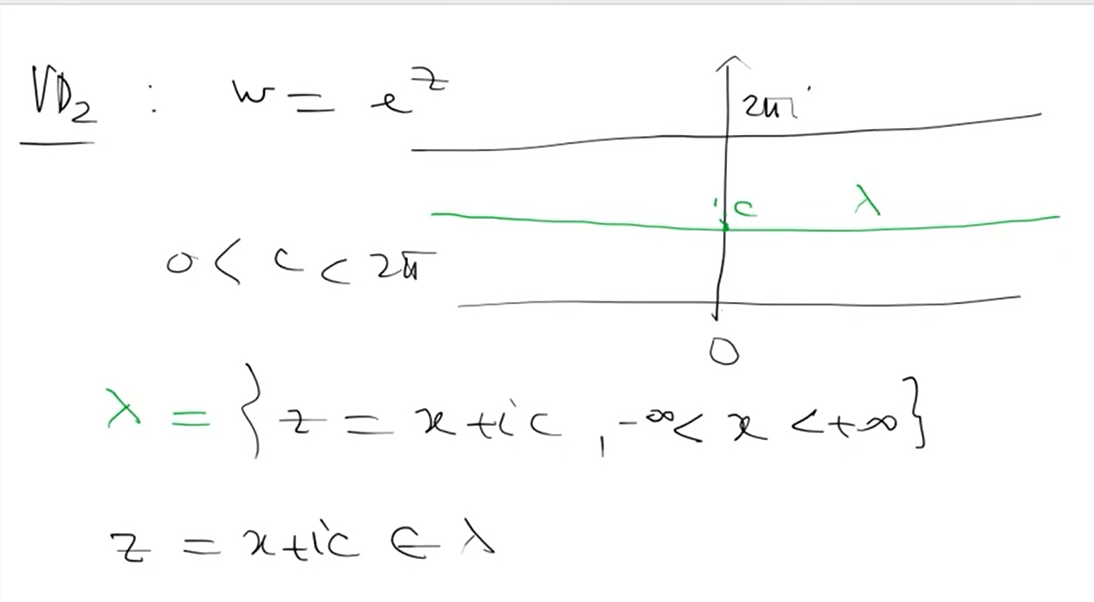 VD₂ : w = e^z
2πi
ic λ
0 < c < 2π
0
λ = { z = x+ic , -∞ < x < +∞ }
z = x+ic ∈ λ